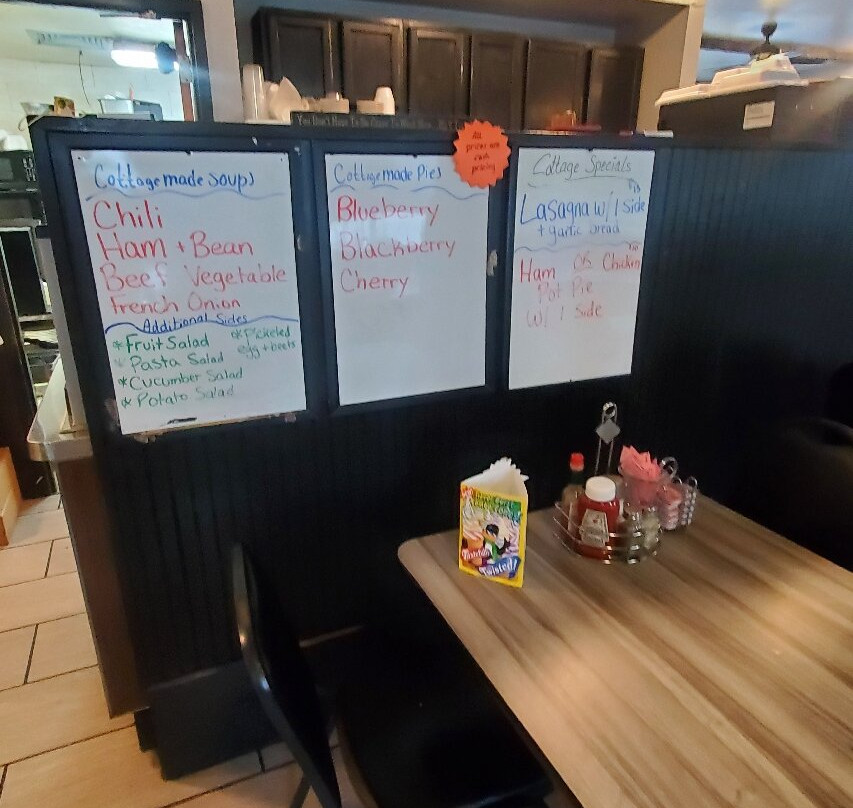 Cottage made Soups
Chili
Ham + Bean
Beef Vegetable
French Onion
Additional Sides
*Fruit Salad
*Pasta Salad
*Cucumber Salad
*Potato Salad
*Pickeled
egg + beets
Cottage made Pies
Blueberry
Blackberry
Cherry
All
prices are
cash
pricing
Cottage Specials
Lasagna w/ 1 side
+ garlic bread
Ham OR Chicken
Pot Pie
w/ 1 side
You Don't Have To Be Crazy To Work Here
Twisted!